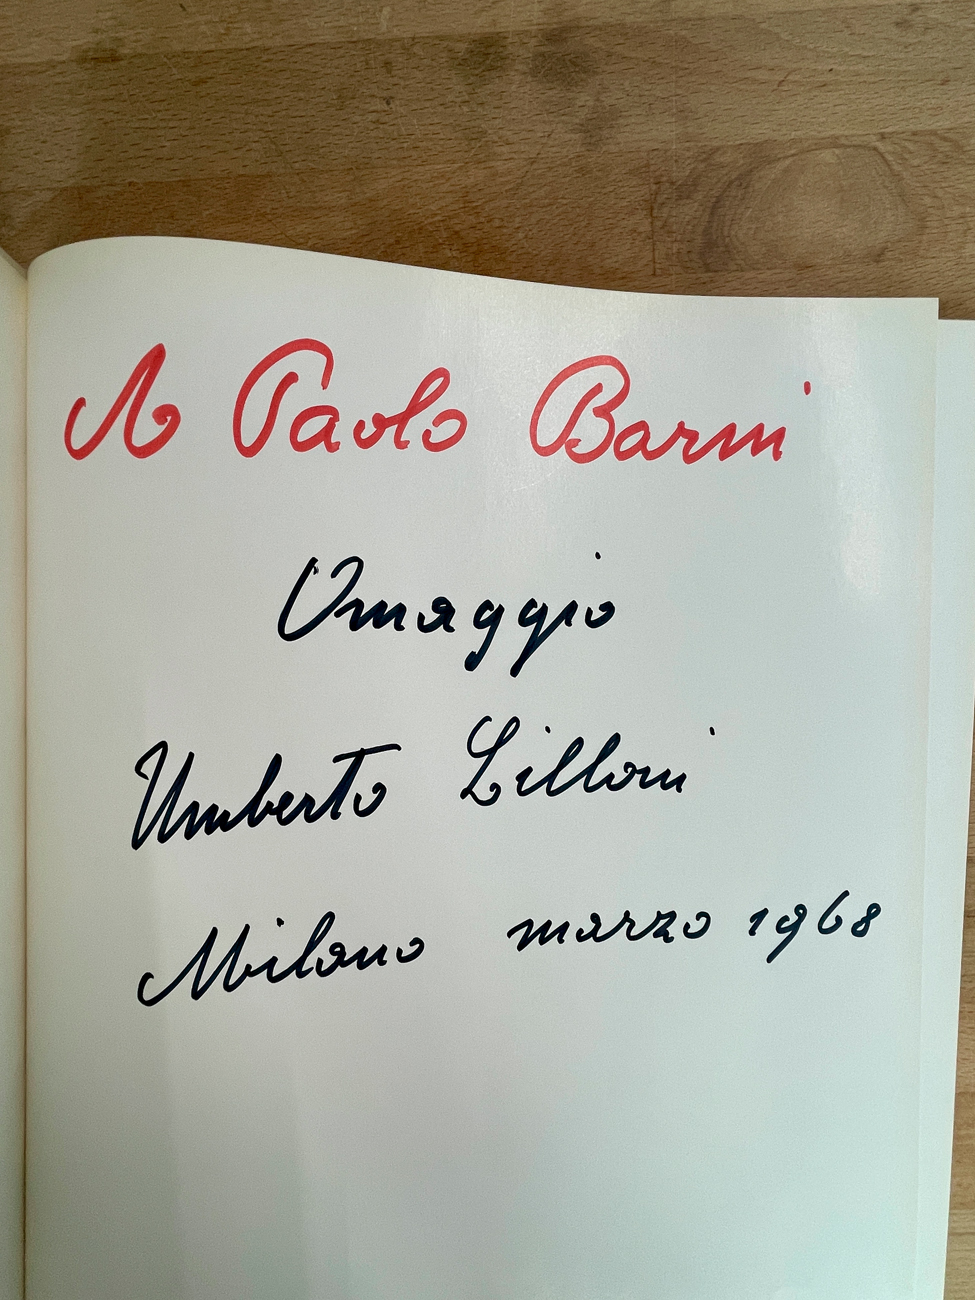 A Paolo Barni
Omaggio
Umberto Lilloni
Milano marzo 1968